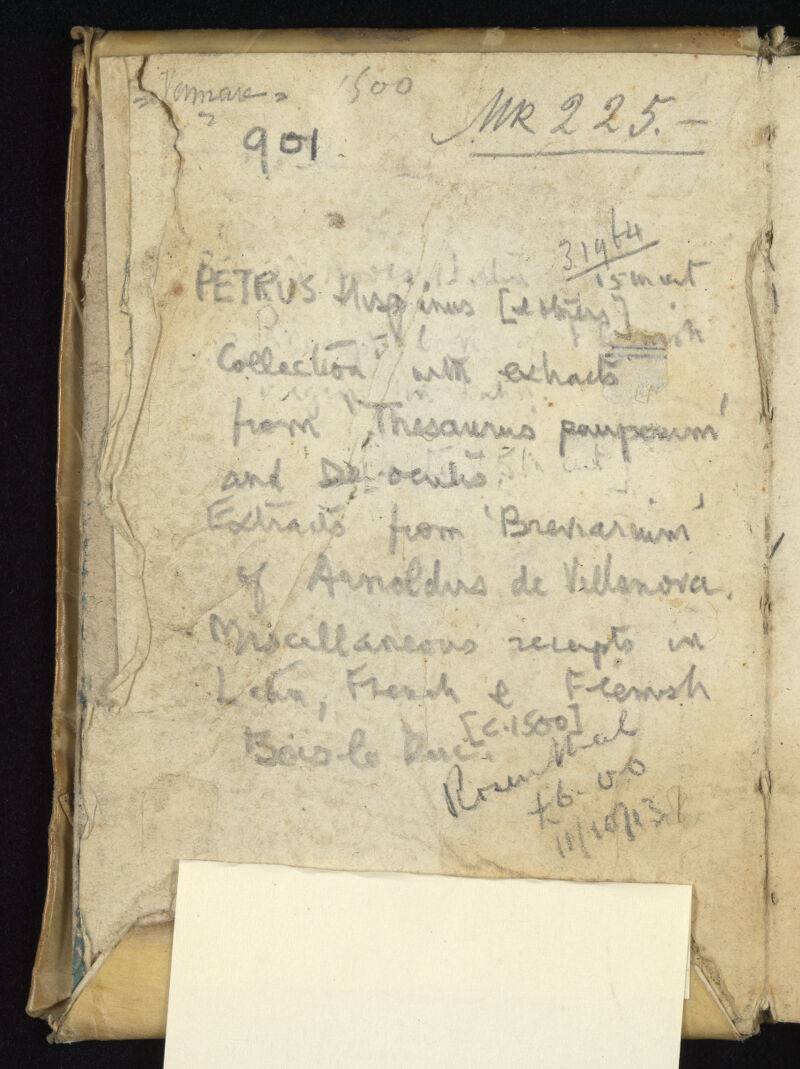 1500
MR 225.-
901
31964
PETRUS Hispanus [& others]
Collection with extracts
from 'Thesaurus pauperum'
and De oculis.
Extracts from 'Breviarium'
of Arnoldus de Villanova.
Miscellaneous receipts in
Latin, French & Flemish
[c.1500]
Bois-le Duc.
Rosenthal
£6.00